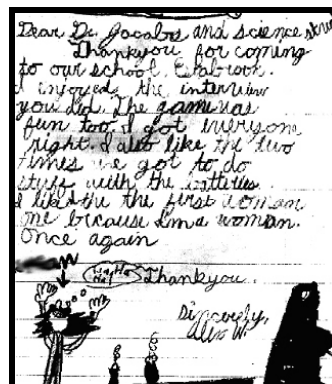 Dear Dr. Jacobs and science
Thankyou for coming
to our school, Estabrook.
I enjoyed the interview
you did. The game was
fun too. I got everyone
right. I also like the two
times we got to do
stuff with the batteries.
I liked the the first woman
one because Im a woman.
Once again
Thankyou.
Sincerely,
Alex W.